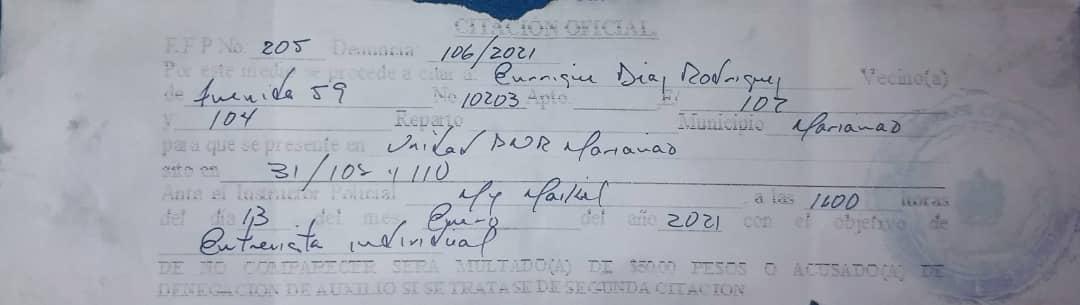 CITACIÓN OFICIAL
E.F.P No. 205 Denuncia: 106/2021
Por este medio se procede a citar a: Enrrique Diaz Rodriguez Vecino(a)
de Avenida 59 No 10203 Apto. E/ 102
y 104 Reparto Municipio Marianao
para que se presente en Unidad PNR Marianao
sito en 31/108 y 110
Ante el Instructor Policial My Maikel a las 1600 horas
del día 13 del mes Enero del año 2021 con el objetivo de
Entrevista individual
DE NO COMPARECER SERÁ MULTADO(A) DE $50.00 PESOS O ACUSADO(A) DE
DENEGACION DE AUXILIO SI SE TRATASE DE SEGUNDA CITACION